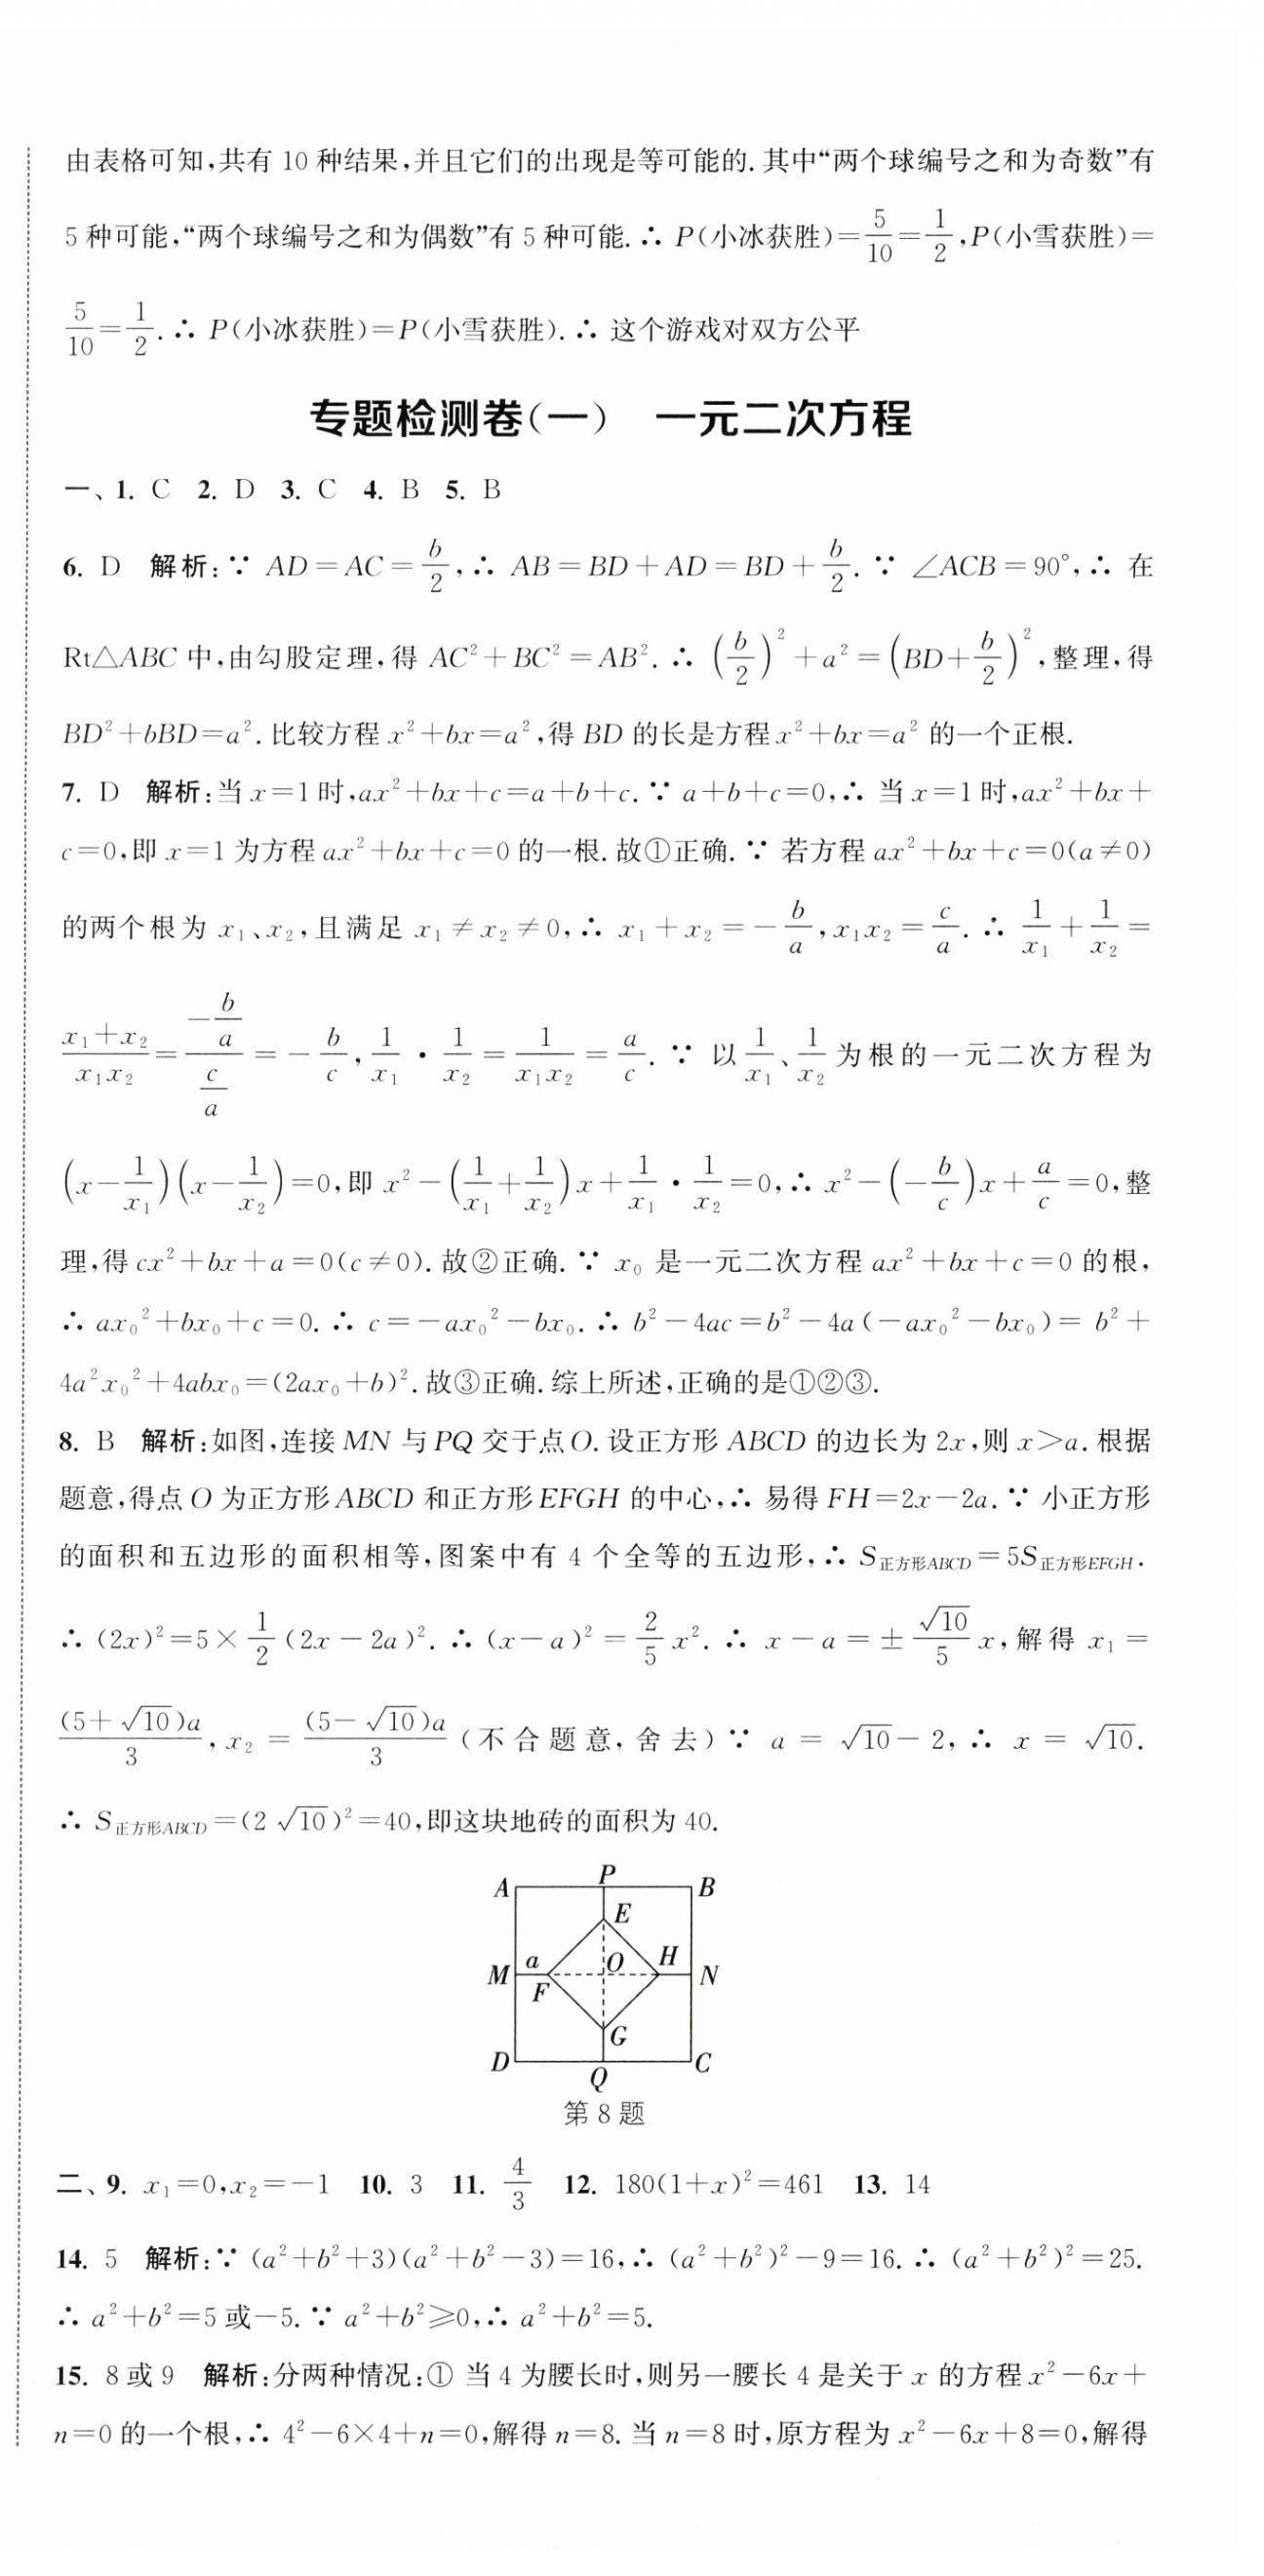 由表格可知,共有 10 种结果,并且它们的出现是等可能的.其中“两个球编号之和为奇数”有
5 种可能,“两个球编号之和为偶数”有 5 种可能.∴ P(小冰获胜)=5/10=1/2,P(小雪获胜)=
5/10=1/2.∴ P(小冰获胜)=P(小雪获胜).∴ 这个游戏对双方公平
专题检测卷(一) 一元二次方程
一、1. C 2. D 3. C 4. B 5. B
6. D 解析:∵ AD=AC=b/2,∴ AB=BD+AD=BD+b/2.∵ ∠ACB=90°,∴ 在
Rt△ABC 中,由勾股定理,得 AC²+BC²=AB².∴ (b/2)²+a²=(BD+b/2)²,整理,得
BD²+bBD=a².比较方程 x²+bx=a²,得 BD 的长是方程 x²+bx=a² 的一个正根.
7. D 解析:当 x=1 时,ax²+bx+c=a+b+c.∵ a+b+c=0,∴ 当 x=1 时,ax²+bx+
c=0,即 x=1 为方程 ax²+bx+c=0 的一根.故①正确.∵ 若方程 ax²+bx+c=0(a≠0)
的两个根为 x₁、x₂,且满足 x₁≠x₂≠0,∴ x₁+x₂=-b/a,x₁x₂=c/a.∴ 1/x₁+1/x₂=
(x₁+x₂)/(x₁x₂)=(-b/a)/(c/a)=-b/c,1/x₁·1/x₂=1/(x₁x₂)=a/c.∵ 以 1/x₁、1/x₂ 为根的一元二次方程为
(x-1/x₁)(x-1/x₂)=0,即 x²-(1/x₁+1/x₂)x+1/x₁·1/x₂=0,∴ x²-(-b/c)x+a/c=0,整
理,得 cx²+bx+a=0(c≠0).故②正确.∵ x₀ 是一元二次方程 ax²+bx+c=0 的根,
∴ ax₀²+bx₀+c=0.∴ c=-ax₀²-bx₀.∴ b²-4ac=b²-4a(-ax₀²-bx₀)=b²+
4a²x₀²+4abx₀=(2ax₀+b)².故③正确.综上所述,正确的是①②③.
8. B 解析:如图,连接 MN 与 PQ 交于点 O.设正方形 ABCD 的边长为 2x,则 x>a.根据
题意,得点 O 为正方形 ABCD 和正方形 EFGH 的中心,∴ 易得 FH=2x-2a.∵ 小正方形
的面积和五边形的面积相等,图案中有 4 个全等的五边形,∴ S正方形ABCD=5S正方形EFGH.
∴ (2x)²=5×1/2(2x-2a)².∴ (x-a)²=2/5x².∴ x-a=±√10/5 x,解得 x₁=
(5+√10)a/3,x₂=(5-√10)a/3(不合题意,舍去)∵ a=√10-2,∴ x=√10.
∴ S正方形ABCD=(2√10)²=40,即这块地砖的面积为 40.
A P B
E
M a F O H N
G
D Q C
第 8 题
二、9. x₁=0,x₂=-1 10. 3 11. 4/3 12. 180(1+x)²=461 13. 14
14. 5 解析:∵ (a²+b²+3)(a²+b²-3)=16,∴ (a²+b²)²-9=16.∴ (a²+b²)²=25.
∴ a²+b²=5 或-5.∵ a²+b²≥0,∴ a²+b²=5.
15. 8 或 9 解析:分两种情况:① 当 4 为腰长时,则另一腰长 4 是关于 x 的方程 x²-6x+
n=0 的一个根,∴ 4²-6×4+n=0,解得 n=8.当 n=8 时,原方程为 x²-6x+8=0,解得